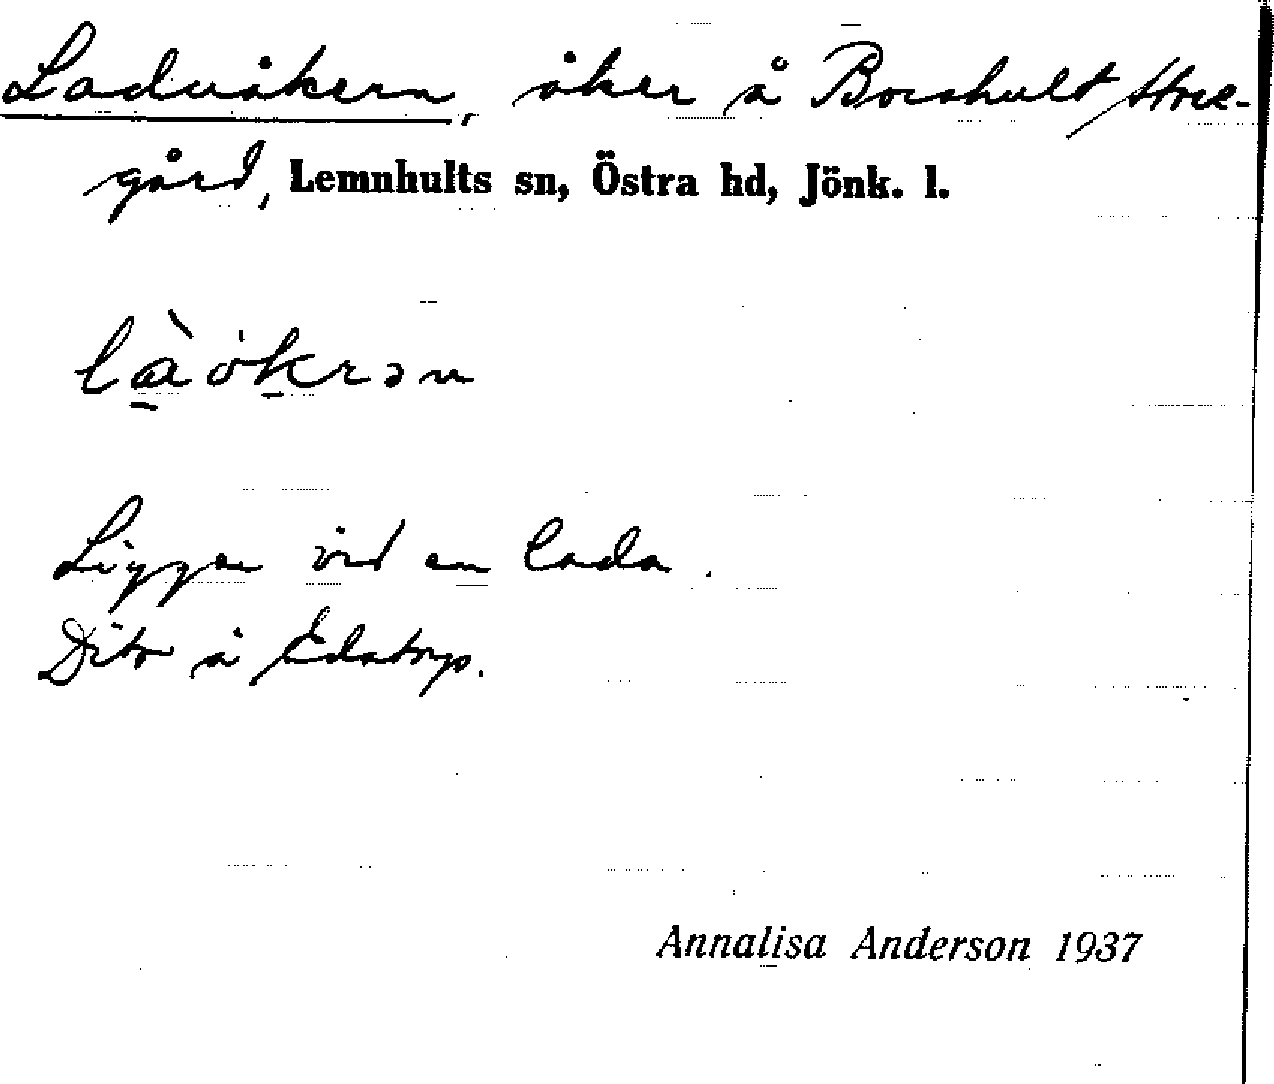 Laduåkern, åker å Boshult Stor-
gård, Lemnhults sn, Östra hd, Jönk. l.
làökrən
Ligger vid en lada.
Dito å Edstorp.
Annalisa Anderson 1937